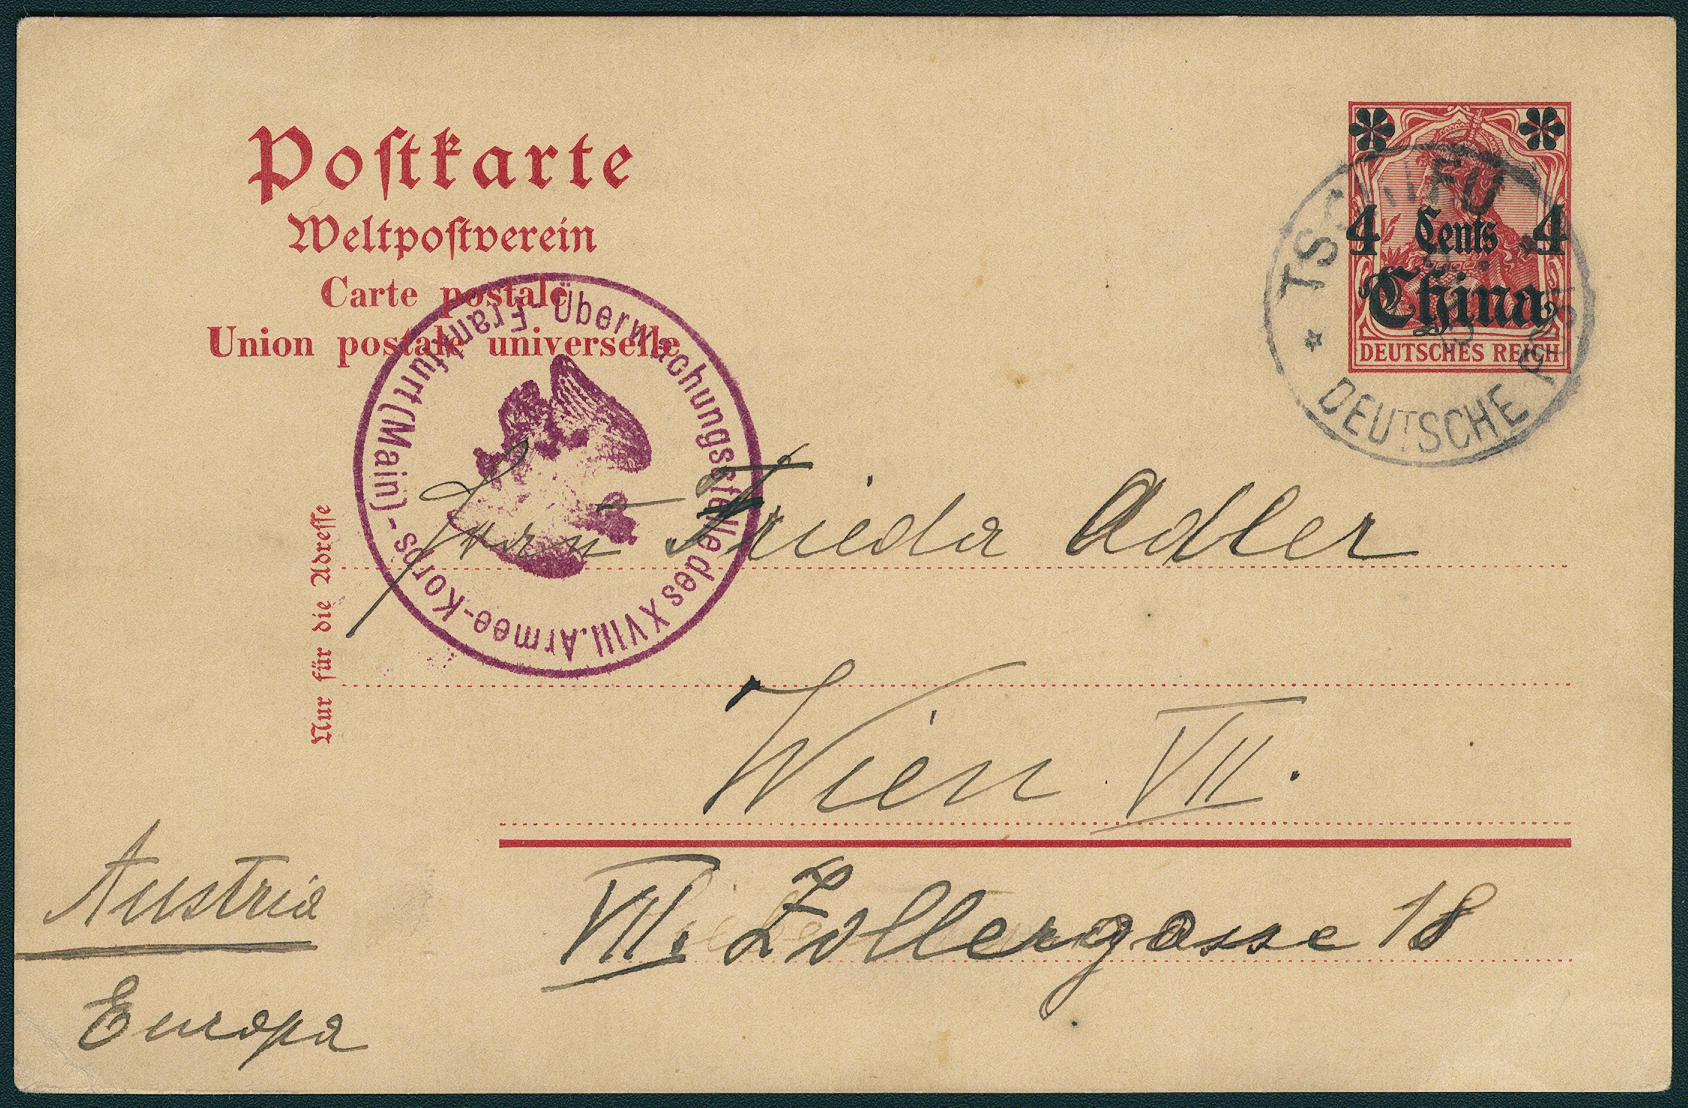 Postkarte
Weltpostverein
Carte postale
Union postale universelle
4 Cents 4
China
DEUTSCHES REICH
TSCHIFU
* DEUTSCHE POST
Überwachungsstelle des XVIII. Armee-Korps - Frankfurt (Main) -
Nur für die Adresse
Frau Frieda Adler
Wien VII.
VII. Zollergasse 18
Austria
Europa